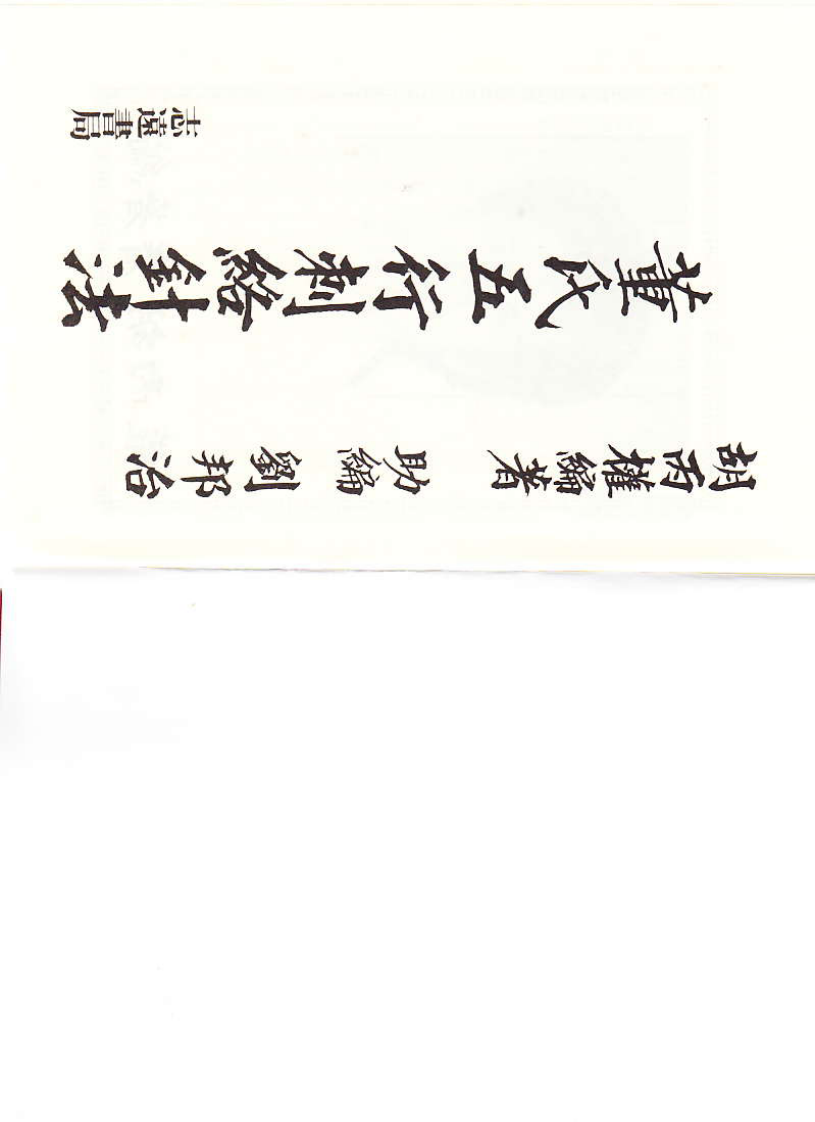 胡丙權編著 助編 劉邦治
董氏五行刺絡針法
志遠書局